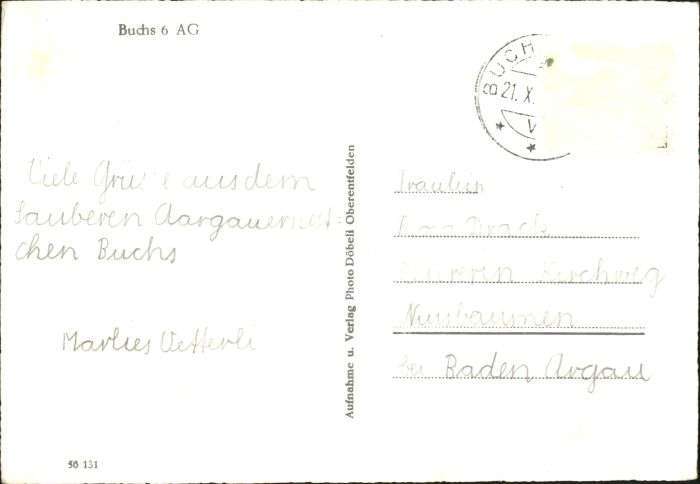 Buchs 6 AG
BUCH
21. X.
V
Viele Grüsse aus dem
sauberen Aargauerstät-
chen Buchs
Marlies Vetterli
56 131
Aufnahme u. Verlag Photo Döbeli Oberentfelden
Fräulein
Kirchweg
Nussbaumen
bei Baden Argau